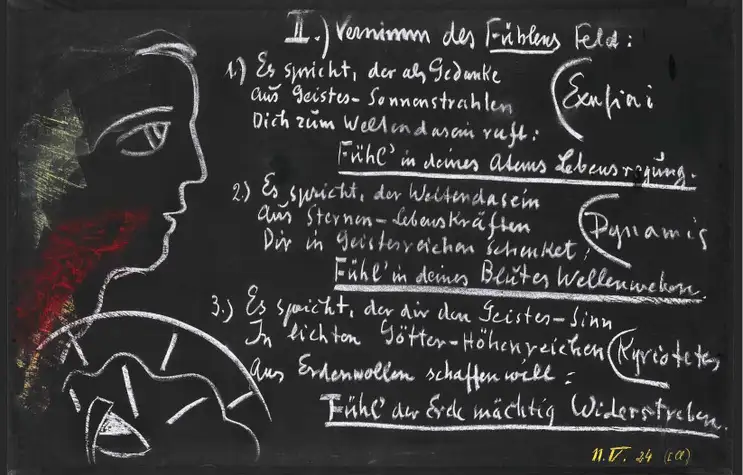 II.) Vernimm des Fühlens Feld:
1.) Es spricht, der als Gedanke
aus Geistes-Sonnenstrahlen
Dich zum Weltendasein ruft:
Fühl' in deines Atems Lebensregung.
(Exusiai
2.) Es spricht, der Weltendasein
aus Sternen-Lebenskräften
Dir in Geistesreichen schenket:
Fühl' in deines Blutes Wellenweben.
(Dynamis
3.) Es spricht, der dir den Geistes-Sinn
In lichten Götter-Höhenreichen
aus Erdenwollen schaffen will:
(Kyriotetes
Fühl' der Erde mächtig Widerstreben.
11. IV. 24